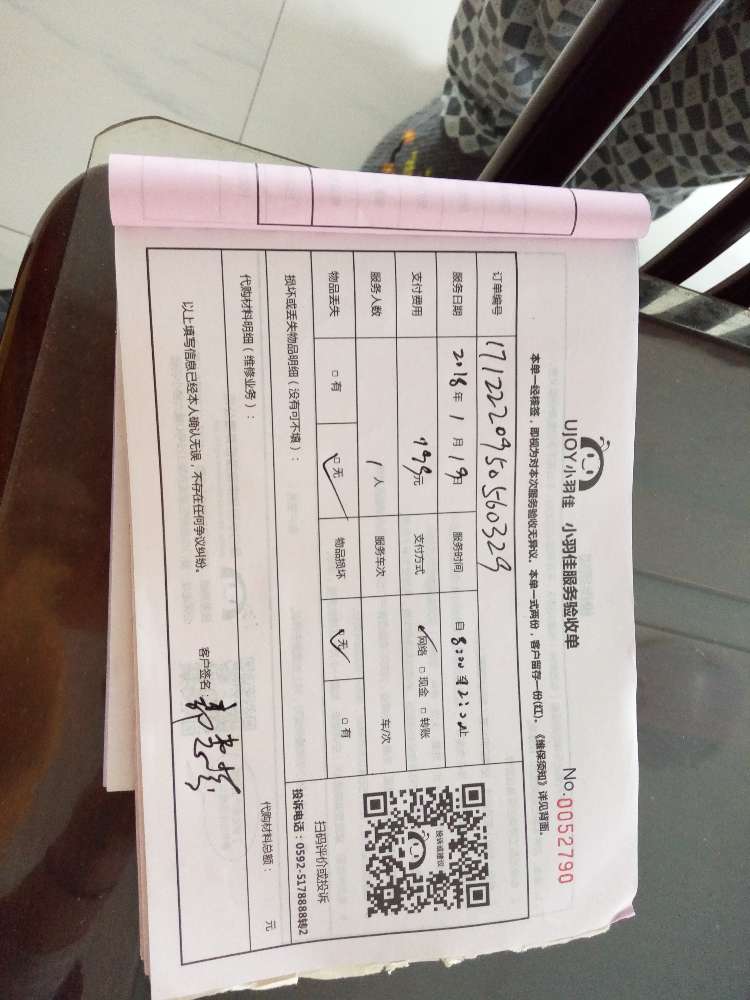 UJOY小羽佳 小羽佳服务验收单 No.0052790
本单一经核签，即视为对本次服务验收无异议。本单一式两份，客户留存一份(红)。《维保须知》详见背面。
订单编号 1712220950560329
服务日期 2018年1月19日 服务时间 自8:00至12:00止
支付费用 199元 支付方式 ☑网络 □现金 □转账
服务人数 1人 服务车次 车/次
物品丢失 □有 ☑无 物品损坏 ☑无 □有
投诉或建议
扫码评价或投诉
投诉电话：0592-5178888转2
损坏或丢失物品明细（没有可不填）：
代购材料明细（维修业务）： 代购材料总额： 元
以上填写信息已经本人确认无误，不存在任何争议纠纷。 客户签名：